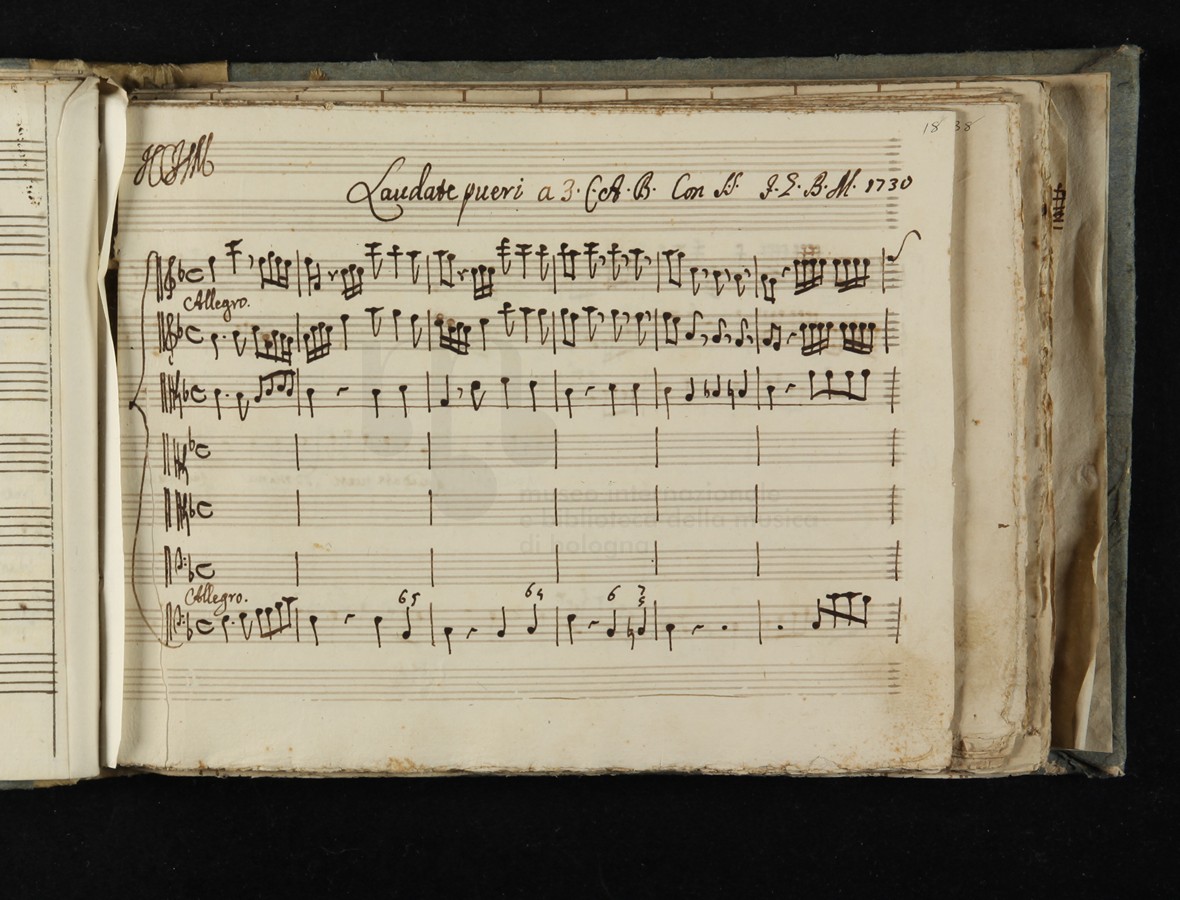 18 38
Laudate pueri a 3. C. A. B. Con
B. M. 1730
Allegro.
museo internazionale
e biblioteca della musica
di bologna
Allegro.
6 5
6 4
6